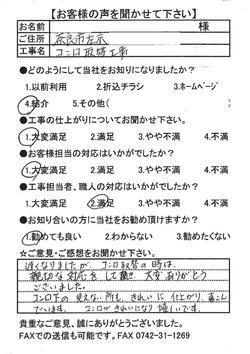 【お客様の声を聞かせて下さい】
お名前 様
ご住所 奈良市左京
工事名 コンロ取替工事
●どのようにして当社をお知りになりましたか？
1.以前利用 2.折込チラシ 3.ホームページ
4.紹介 5.その他( )
●工事の仕上がりについてお聞かせ下さい。
1.大変満足 2.満足 3.やや不満 4.不満
●お客様担当の対応はいかがでしたか？
1.大変満足 2.満足 3.やや不満 4.不満
●工事担当者、職人の対応はいかがでしたか？
1.大変満足 2.満足 3.やや不満 4.不満
●お知り合いの方に当社をお勧め頂けますか？
1.勧めても良い 2.わからない 3.勧めたくない
☆ご意見・ご感想をお聞かせ下さい。
遅くなりましたが、コンロ取替の時は、
親切な対応をして頂き、大変ありがとう
ございました。
コンロ下の見えない所も、きれいに仕上がり、喜こん
でいます。コンロがきれいになり嬉しいです。
貴重なご意見、誠にありがとうございました。
FAXでの送信も可能です。FAX 0742-31-1269